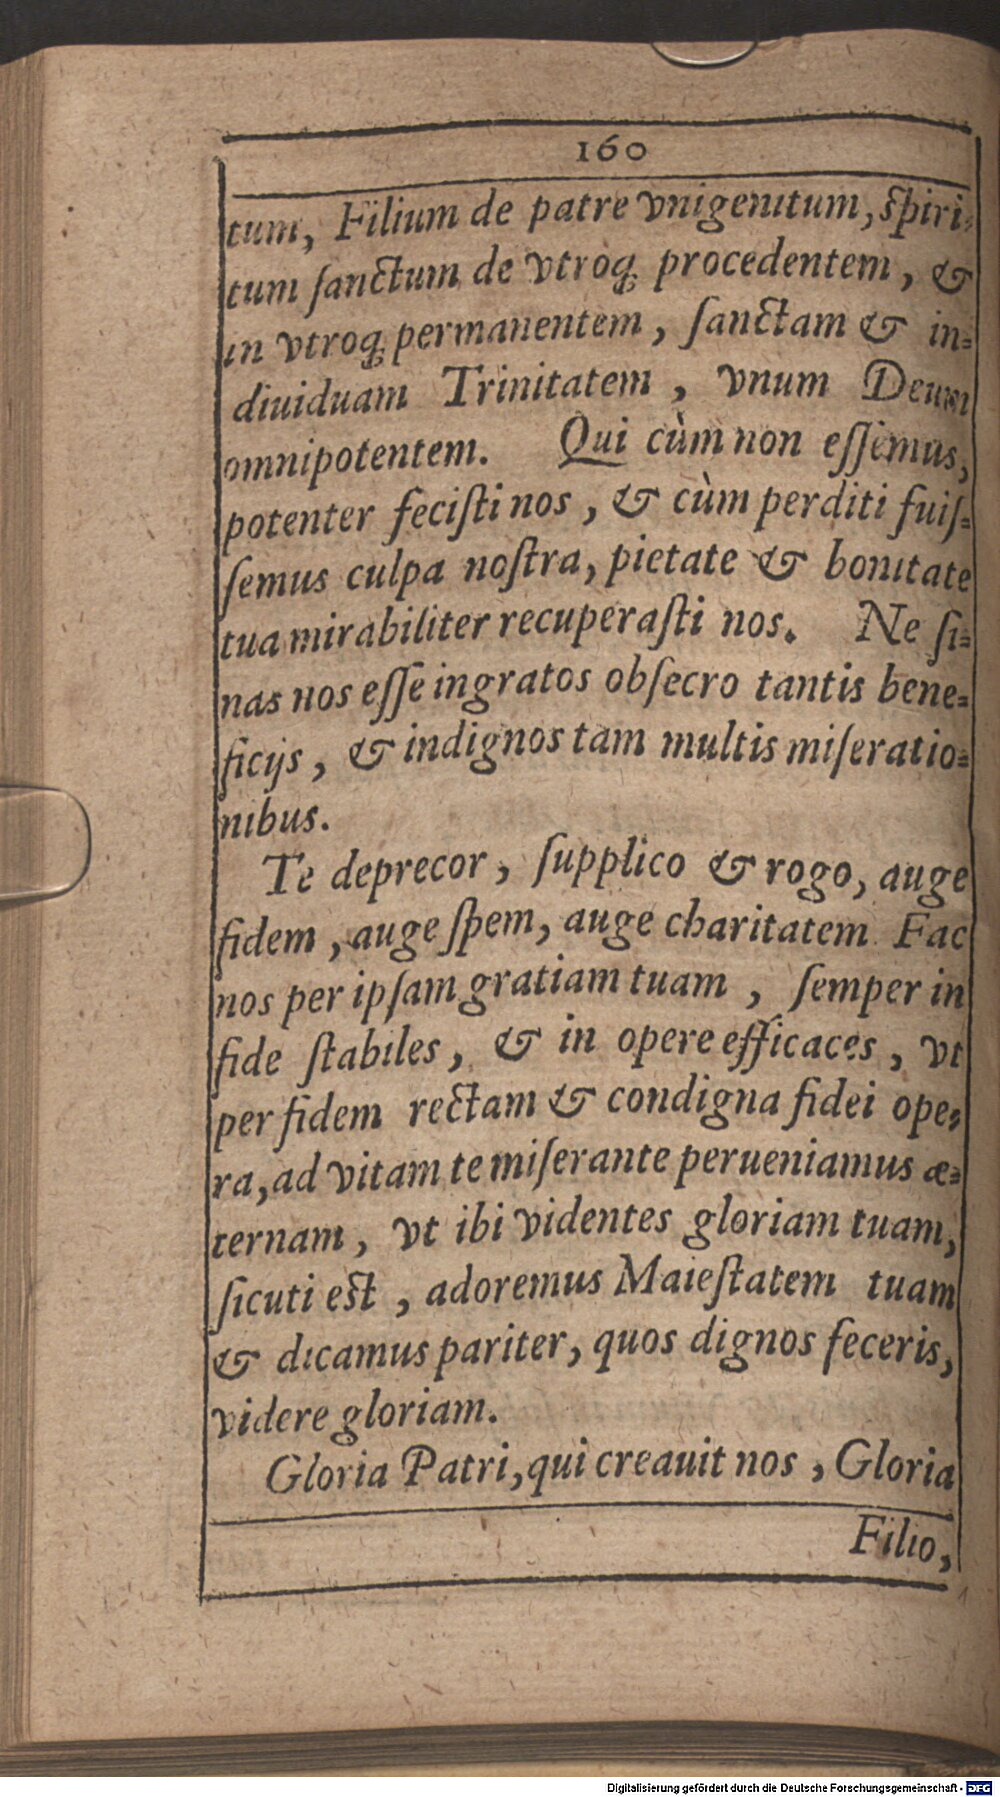 160
tum, Filium de patre vnigenitum, spiri-
tum ſanctum de vtroq; procedentem, &
in vtroq; permanentem, ſanctam & in-
diuiduam Trinitatem, vnum Deum
omnipotentem. Qui cùm non eſſemus,
potenter feciſti nos, & cùm perditi fuiſ-
ſemus culpa noſtra, pietate & bonitate
tua mirabiliter recuperaſti nos. Ne ſi-
nas nos eſſe ingratos obſecro tantis bene-
ficijs, & indignos tam multis miſeratio-
nibus.
Te deprecor, ſupplico & rogo, auge
fidem, auge ſpem, auge charitatem Fac
nos per ipſam gratiam tuam, ſemper in
fide ſtabiles, & in opere efficaces, vt
per fidem rectam & condigna fidei ope-
ra, ad vitam te miſerante perueniamus æ-
ternam, vt ibi videntes gloriam tuam,
ſicuti est, adoremus Maieſtatem tuam
& dicamus pariter, quos dignos feceris,
videre gloriam.
Gloria Patri, qui creauit nos, Gloria
Filio,
Digitalisierung gefördert durch die Deutsche Forschungsgemeinschaft - DFG